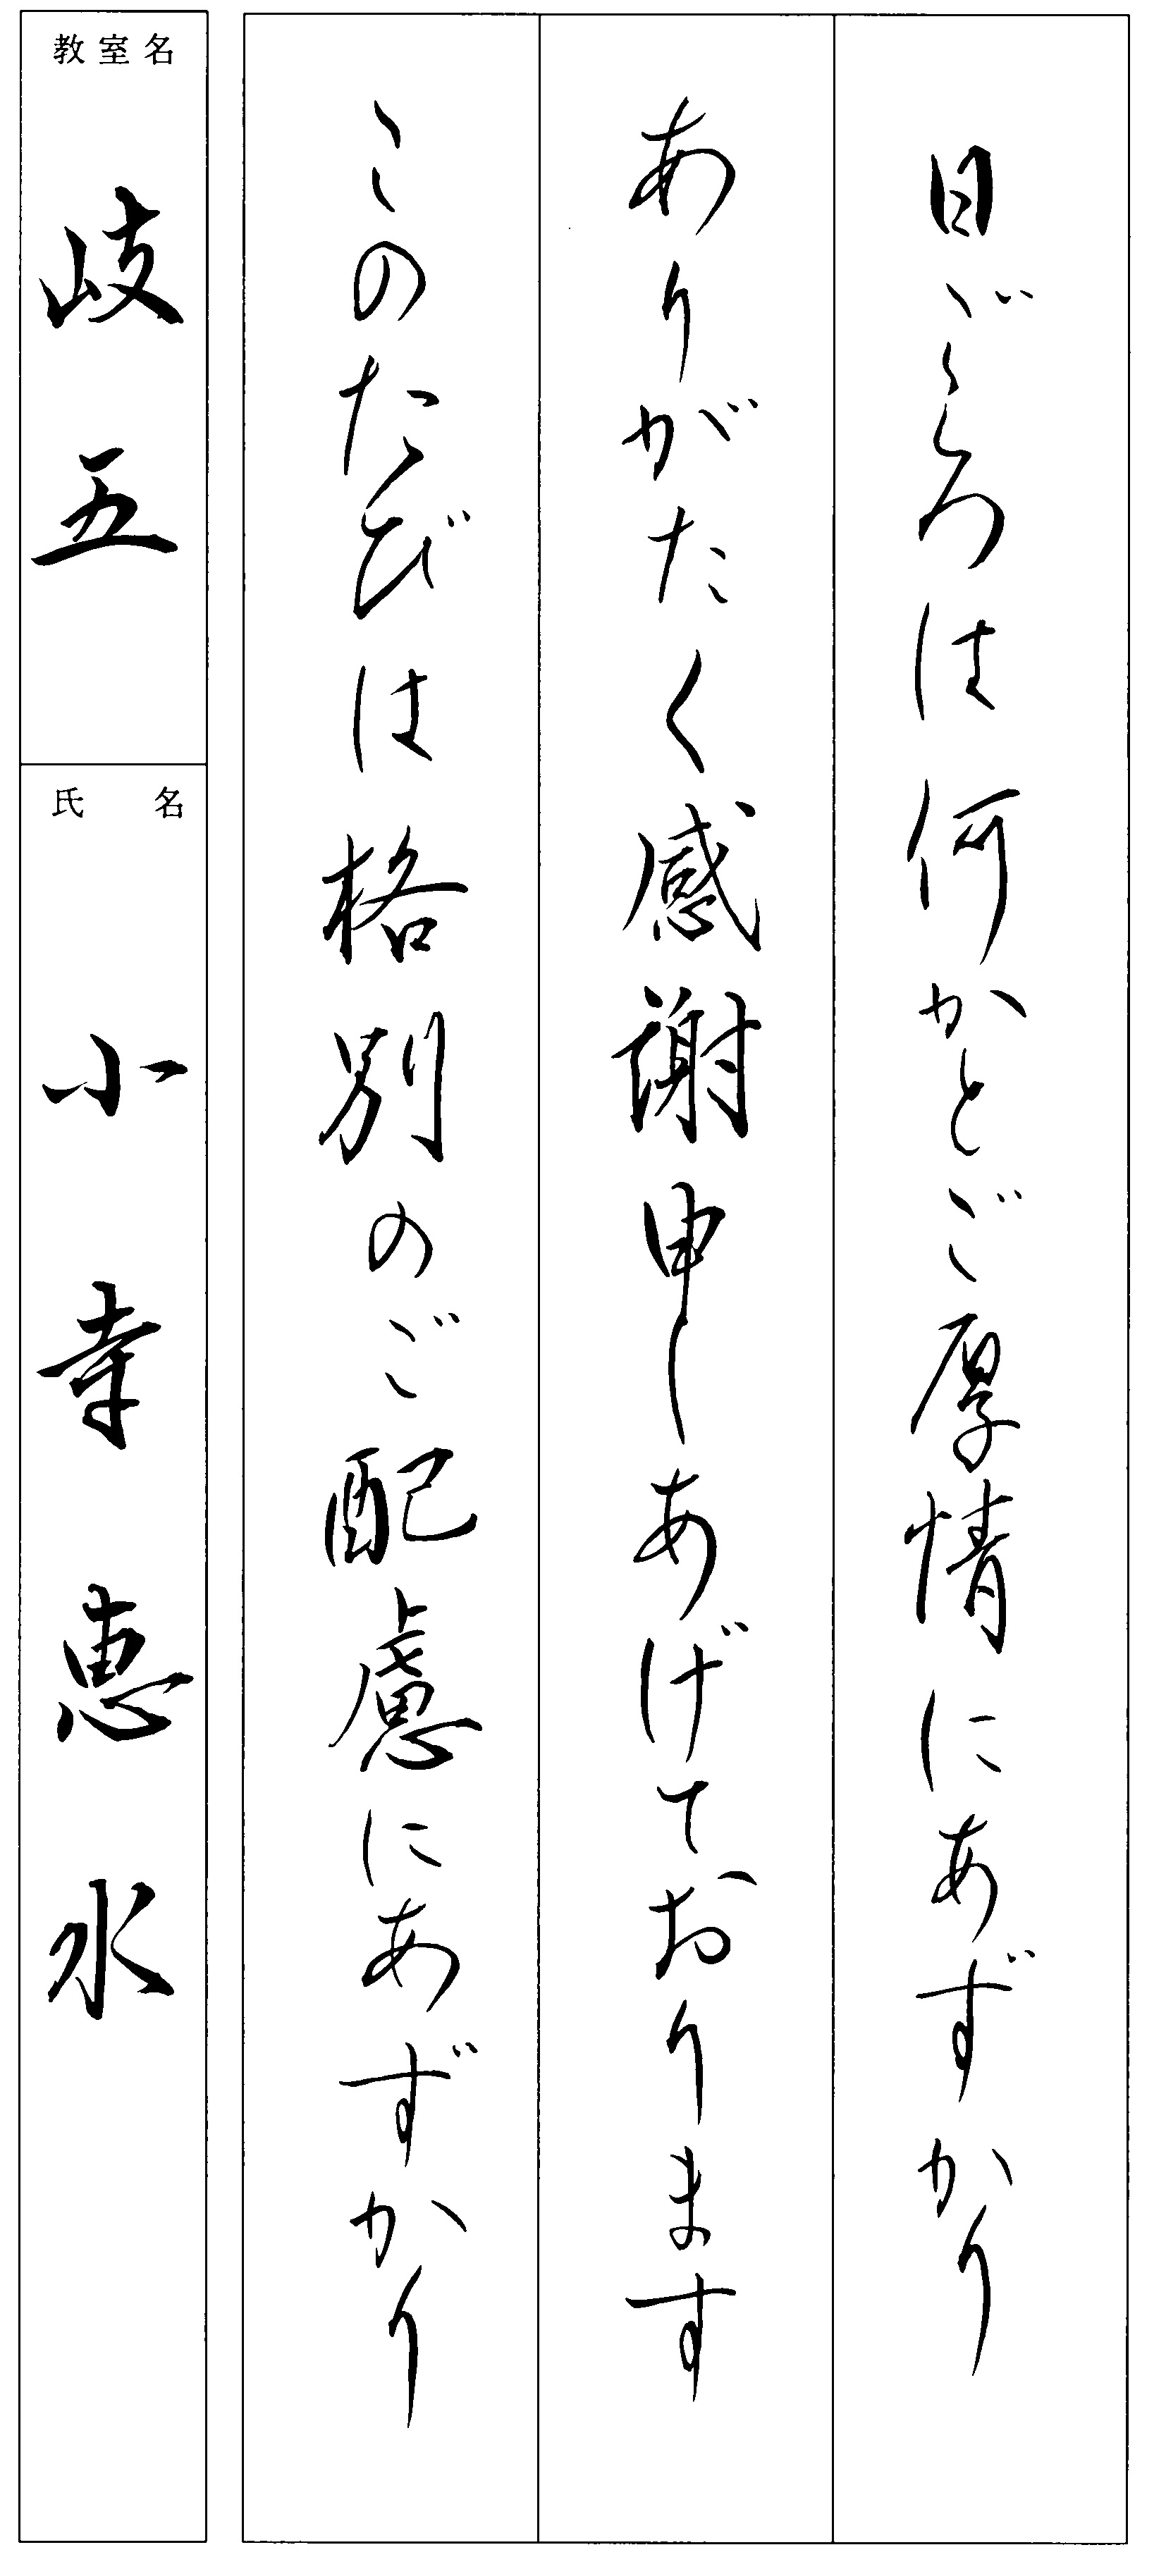 日ごろは何かとご厚情にあずかり
ありがたく感謝申しあげております
このたびは格別のご配慮にあずかり
教室名
岐五
氏名
小幸恵水